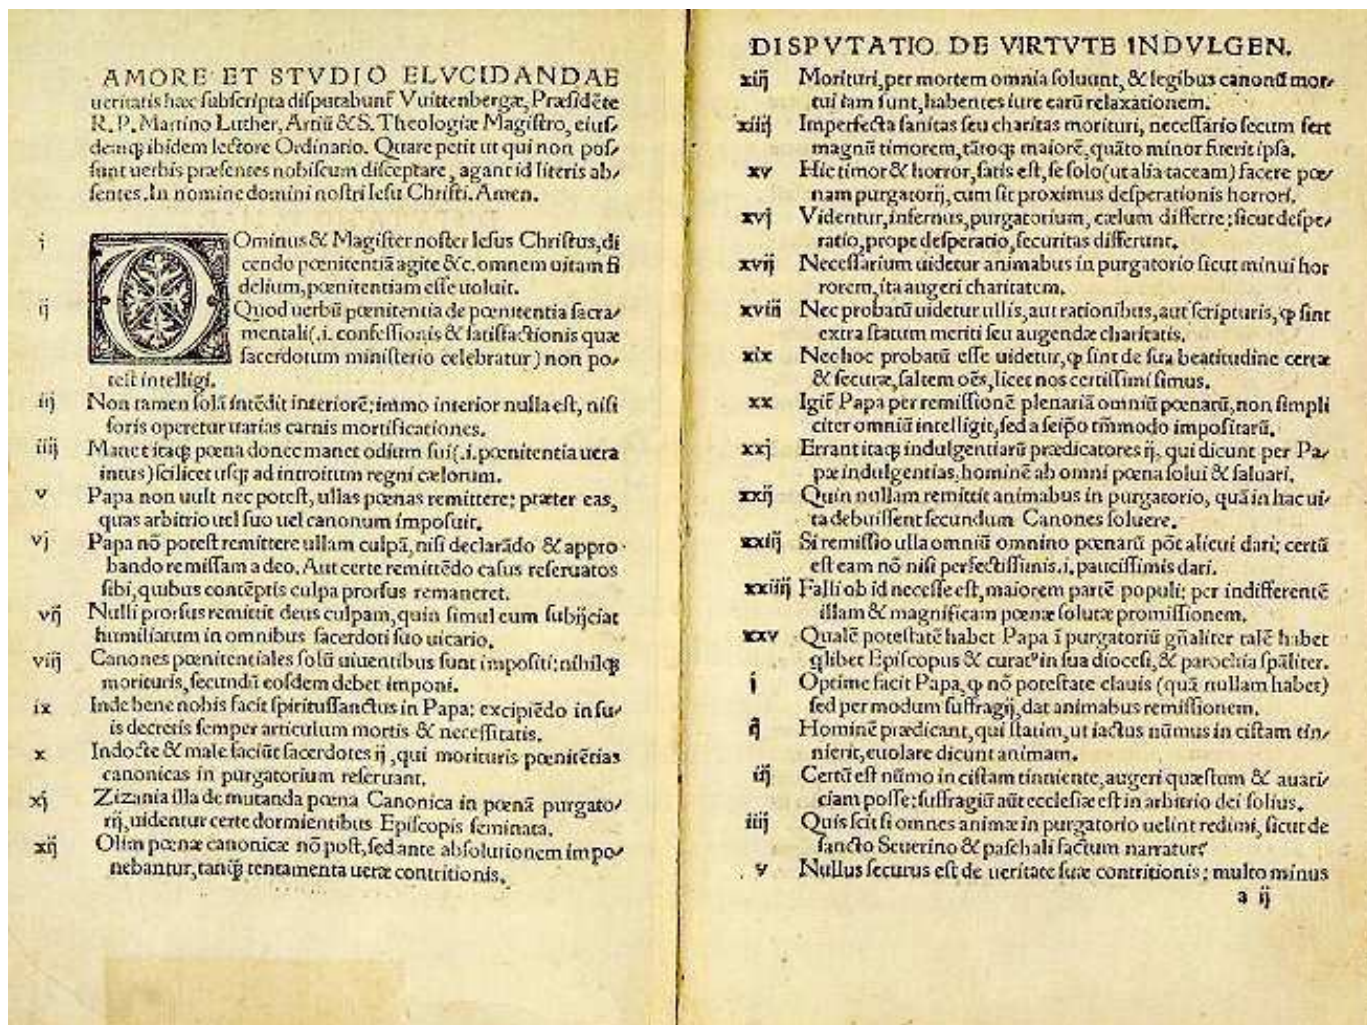 AMORE ET STVDIO ELVCIDANDAE
ueritatis hæc ſubſcripta diſputabunt̃ Vuittenbergæ, Præſidẽte
R. P. Martino Luther, Artiũ & S. Theologiæ Magiſtro, eiuſ⸗
demq; ibidem lectore Ordinario. Quare petit ut qui non poſ⸗
ſunt uerbis præſentes nobiſcum diſceptare, agant id literis ab⸗
ſentes. In nomine domini noſtri Ieſu Chriſti. Amen.
i DOminus & Magiſter noſter Ieſus Chriſtus, di
cendo pœnitentiã agite &c. omnem uitam fi
delium, pœnitentiam eſſe uoluit.
ij Quod uerbũ pœnitentia de pœnitentia ſacra⸗
mentali (.i. confeſſionis & ſatiſfactionis quæ
ſacerdotum miniſterio celebratur) non po⸗
teſt intelligi.
iij Non tamen ſolã intẽdit interiorẽ: immo interior nulla eſt, niſi
foris operetur uarias carnis mortificationes.
iiij Manet itaq; pœna donec manet odium ſui (.i. pœnitentia uera
intus) ſcilicet uſq; ad introitum regni cælorum.
v Papa non uult nec poteſt, ullas pœnas remittere: præter eas,
quas arbitrio uel ſuo uel canonum impoſuit.
vj Papa nõ poteſt remittere ullam culpã, niſi declarãdo & appro⸗
bando remiſſam a deo. Aut certe remittẽdo caſus reſeruatos
ſibi, quibus contẽptis culpa prorſus remaneret.
vij Nulli prorſus remittit deus culpam, quin ſimul eum ſubijciat
humiliatum in omnibus ſacerdoti ſuo uicario.
viij Canones pœnitentiales ſolũ uiuentibus ſunt impoſiti: nihilq;
morituris, ſecundũ eoſdem debet imponi.
ix Inde bene nobis facit ſpirituſſanctus in Papa: excipiẽdo in ſu⸗
is decretis ſemper articulum mortis & neceſſitatis.
x Indocte & male faciũt ſacerdotes ij, qui morituris pœnitẽtias
canonicas in purgatorium reſeruant.
xj Zizania illa de mutanda pœna Canonica in pœnã purgato⸗
rij, uidentur certe dormientibus Epiſcopis ſeminata.
xij Olim pœnæ canonicæ nõ poſt, ſed ante abſolutionem impo⸗
nebantur, tanq̃ tentamenta ueræ contritionis.
DISPVTATIO DE VIRTVTE INDVLGEN.
xiij Morituri, per mortem omnia ſoluunt, & legibus canonũ mor⸗
tui iam ſunt, habentes iure earũ relaxationem.
xiiij Imperfecta ſanitas ſeu charitas morituri, neceſſario ſecum fert
magnũ timorem, tãtoq; maiorẽ, quãto minor fuerit ipſa.
xv Hic timor & horror, ſatis eſt, ſe ſolo (ut alia taceam) facere pœ⸗
nam purgatorij, cum ſit proximus deſperationis horrori.
xvj Videntur, infernus, purgatorium, cælum differre: ſicut deſpe⸗
ratio, prope deſperatio, ſecuritas differunt.
xvij Neceſſarium uidetur animabus in purgatorio ſicut minui hor
rorem, ita augeri charitatem.
xviij Nec probatũ uidetur ullis, aut rationibus, aut ſcripturis, ꝙ ſint
extra ſtatum meriti ſeu augendæ charitatis.
xix Nec hoc probatũ eſſe uidetur, ꝙ ſint de ſua beatitudine certæ
& ſecuræ, ſaltem oẽs, licet nos certiſſimi ſimus.
xx Igit̃ Papa per remiſſionẽ plenariã omniũ pœnarũ, non ſimpli
citer omniũ intelligit, ſed a ſeip̃o tm̃modo impoſitarũ.
xxj Errant itaq; indulgentiarũ prædicatores ij, qui dicunt per Pa⸗
pæ indulgentias, hominẽ ab omni pœna ſolui & ſaluari.
xxij Quin nullam remittit animabus in purgatorio, quã in hac ui⸗
ta debuiſſent ſecundum Canones ſoluere.
xxiij Si remiſſio ulla omniũ omnino pœnarũ põt alicui dari; certũ
eſt eam nõ niſi perfectiſſimis .i. pauciſſimis dari.
xxiiij Falli ob id neceſſe eſt, maiorem partẽ populi: per indifferentẽ
illam & magnificam pœnæ ſolutæ promiſſionem.
xxv Qualẽ poteſtatẽ habet Papa ĩ purgatoriũ gñaliter talẽ habet
q̃libet Epiſcopus & curatꝰ in ſua dioceſi, & parochia ſpãliter.
i Optime facit Papa, ꝙ nõ poteſtate clauis (quã nullam habet)
ſed per modum ſuffragij, dat animabus remiſſionem.
ij Hominẽ prædicant, qui ſtatim, ut iactus nũmus in ciſtam tin⸗
nierit, euolare dicunt animam.
iij Certũ eſt nũmo in ciſtam tinniente, augeri quæſtum & auari⸗
ciam poſſe: ſuffragiũ aũt eccleſiæ eſt in arbitrio dei ſolius.
iiij Quis ſcit ſi omnes animæ in purgatorio uelint redimi, ſicut de
ſancto Seuerino & paſchali factum narratur?
v Nullus ſecurus eſt de ueritate ſuæ contritionis: multo minus
a ij